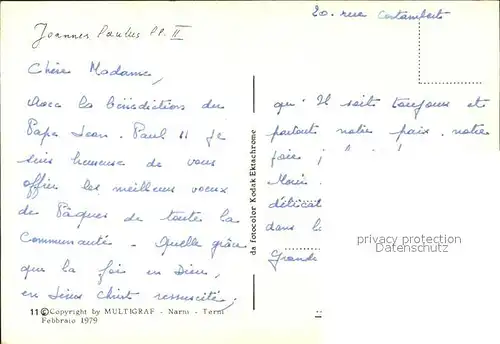 20. rue Costambert
Joannes Paulus PP. II
Chère Madame,
Avec la Bénédiction du
Pape Jean. Paul II je
suis heureuse de vous
offrir les meilleurs voeux
de Pâques de toute la
Communauté - Quelle grâce
que la foi en Dieu,
en Jésus Christ ressuscité,
qu' Il soit toujours et
partout notre paix. notre
joie
délicat
dans l
Grande
da fotocolor Kodak Ektachrome
privacy protection
VINTAGE-POSTCARD.COM
11 © Copyright by MULTIGRAF - Narni - Terni
Febbraio 1979